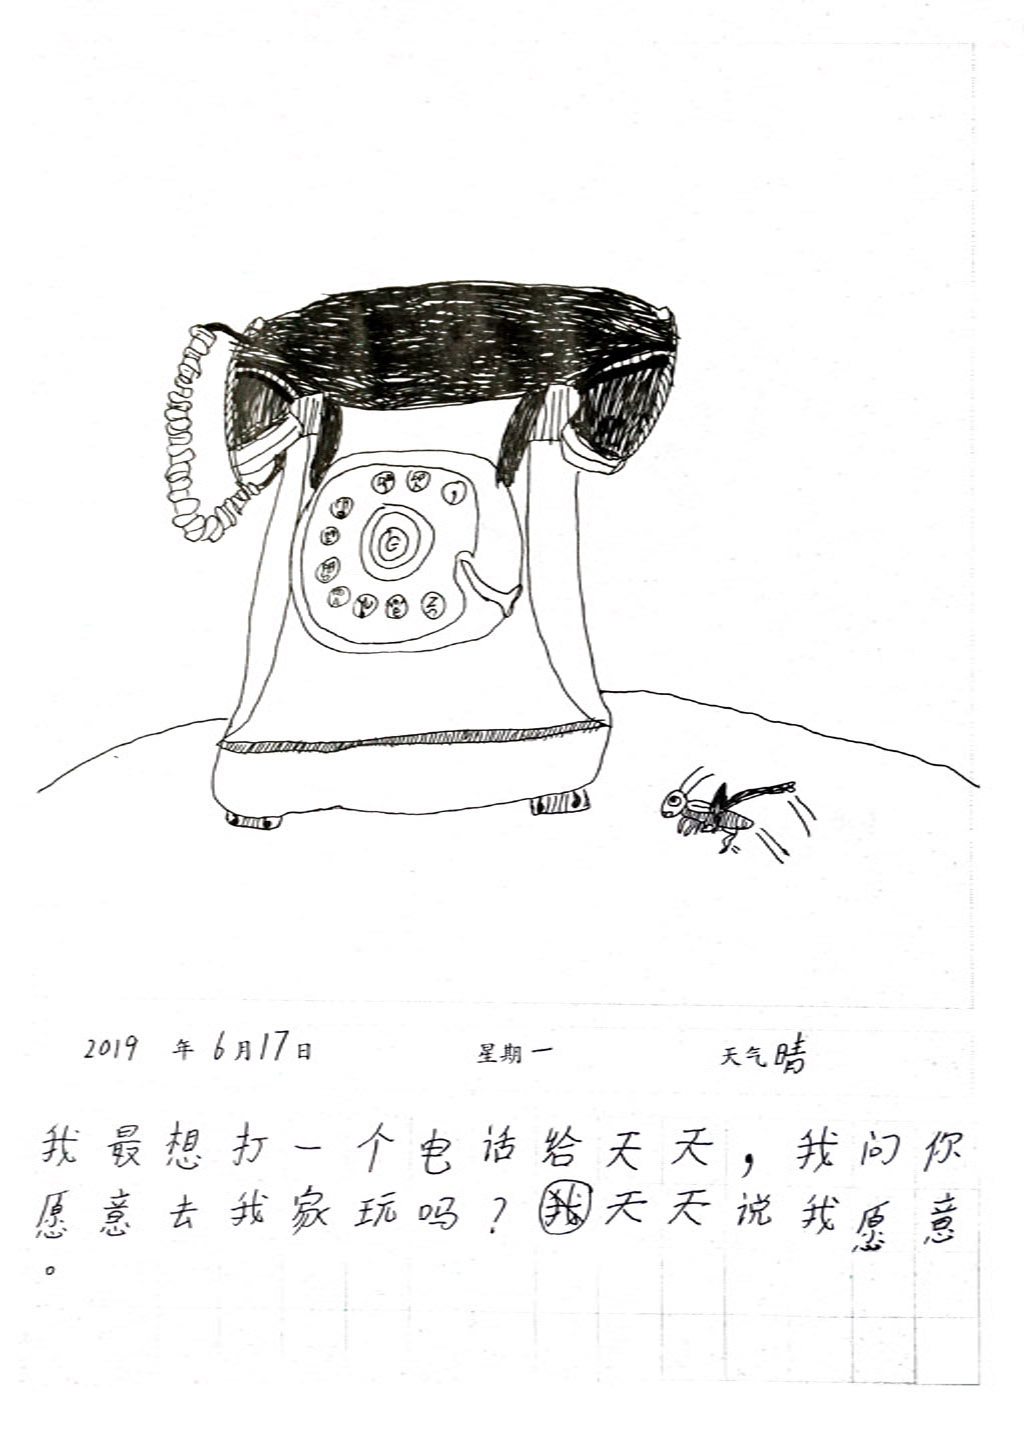 2019 年 6月17日 星期一 天气晴
我最想打一个电话给天天，我问你
愿意去我家玩吗？天天说我愿意
。